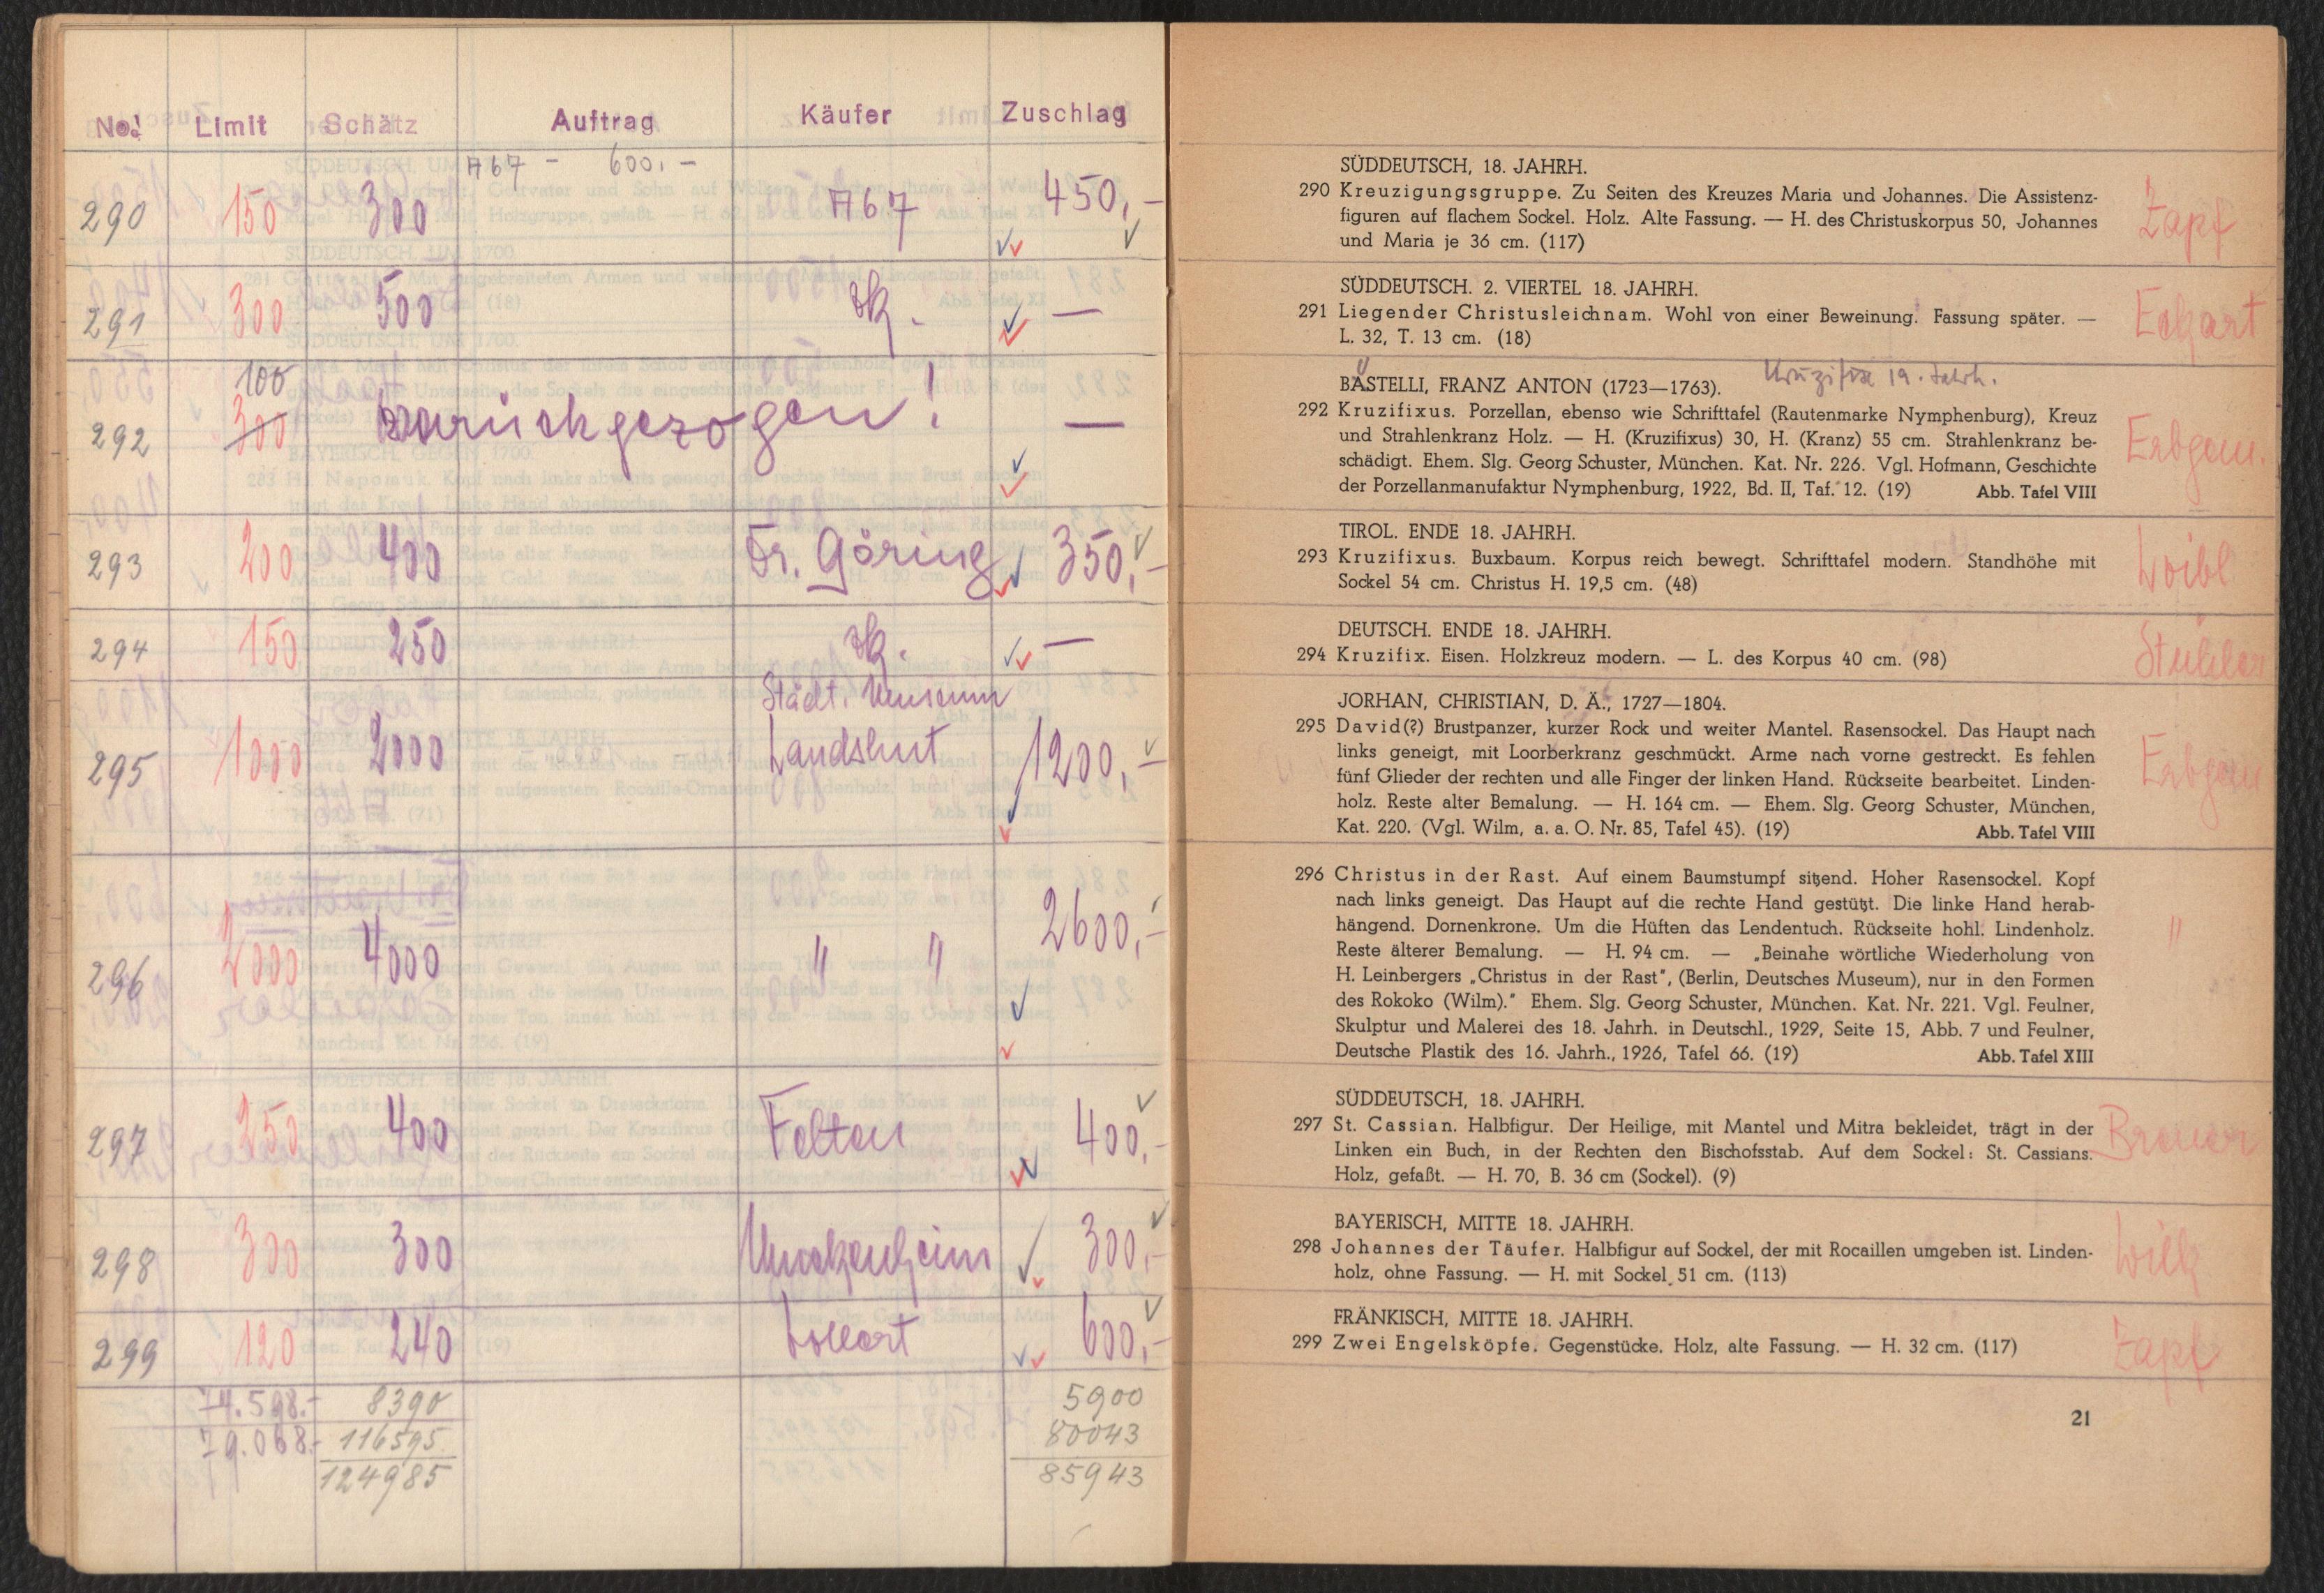 No. Limit Schätz Auftrag Käufer Zuschlag
A67 - 600.-
290 150 300 A67 450,-
291 300 500 -
100
292 300 zurückgezogen! -
293 200 400 Fr. Göring 350,-
294 150 250 -
Städt. Museum
295 1000 2000 Landshut 1200,-
296 2000 4000 " " 2600,-
297 250 400 Felten 400,-
298 300 300 300,-
299 120 240 600,-
74.598.- 8390 5900
79.068.- 116595 80043
124985 85943
SÜDDEUTSCH, 18. JAHRH.
290 Kreuzigungsgruppe. Zu Seiten des Kreuzes Maria und Johannes. Die Assistenz-
figuren auf flachem Sockel. Holz. Alte Fassung. — H. des Christuskorpus 50, Johannes
und Maria je 36 cm. (117)
Zapf
SÜDDEUTSCH. 2. VIERTEL 18. JAHRH.
291 Liegender Christusleichnam. Wohl von einer Beweinung. Fassung später. —
L. 32, T. 13 cm. (18)
Eckart
Kruzifixe 19. Jahrh.
BASTELLI, FRANZ ANTON (1723—1763).
292 Kruzifixus. Porzellan, ebenso wie Schrifttafel (Rautenmarke Nymphenburg), Kreuz
und Strahlenkranz Holz. — H. (Kruzifixus) 30, H. (Kranz) 55 cm. Strahlenkranz be-
schädigt. Ehem. Slg. Georg Schuster, München. Kat. Nr. 226. Vgl. Hofmann, Geschichte
der Porzellanmanufaktur Nymphenburg, 1922, Bd. II, Taf. 12. (19) Abb. Tafel VIII
TIROL. ENDE 18. JAHRH.
293 Kruzifixus. Buxbaum. Korpus reich bewegt. Schrifttafel modern. Standhöhe mit
Sockel 54 cm. Christus H. 19,5 cm. (48)
Loibl
DEUTSCH. ENDE 18. JAHRH.
294 Kruzifix. Eisen. Holzkreuz modern. — L. des Korpus 40 cm. (98)
JORHAN, CHRISTIAN, D. Ä., 1727—1804.
295 David(?) Brustpanzer, kurzer Rock und weiter Mantel. Rasensockel. Das Haupt nach
links geneigt, mit Loorberkranz geschmückt. Arme nach vorne gestreckt. Es fehlen
fünf Glieder der rechten und alle Finger der linken Hand. Rückseite bearbeitet. Linden-
holz. Reste alter Bemalung. — H. 164 cm. — Ehem. Slg. Georg Schuster, München,
Kat. 220. (Vgl. Wilm, a. a. O. Nr. 85, Tafel 45). (19) Abb. Tafel VIII
296 Christus in der Rast. Auf einem Baumstumpf sitzend. Hoher Rasensockel. Kopf
nach links geneigt. Das Haupt auf die rechte Hand gestützt. Die linke Hand herab-
hängend. Dornenkrone. Um die Hüften das Lendentuch. Rückseite hohl. Lindenholz.
Reste älterer Bemalung. — H. 94 cm. — „Beinahe wörtliche Wiederholung von
H. Leinbergers „Christus in der Rast", (Berlin, Deutsches Museum), nur in den Formen
des Rokoko (Wilm)." Ehem. Slg. Georg Schuster, München. Kat. Nr. 221. Vgl. Feulner,
Skulptur und Malerei des 18. Jahrh. in Deutschl., 1929, Seite 15, Abb. 7 und Feulner,
Deutsche Plastik des 16. Jahrh., 1926, Tafel 66. (19) Abb. Tafel XIII
"
SÜDDEUTSCH, 18. JAHRH.
297 St. Cassian. Halbfigur. Der Heilige, mit Mantel und Mitra bekleidet, trägt in der
Linken ein Buch, in der Rechten den Bischofsstab. Auf dem Sockel: St. Cassians.
Holz, gefaßt. — H. 70, B. 36 cm (Sockel). (9)
BAYERISCH, MITTE 18. JAHRH.
298 Johannes der Täufer. Halbfigur auf Sockel, der mit Rocaillen umgeben ist. Linden-
holz, ohne Fassung. — H. mit Sockel 51 cm. (113)
FRÄNKISCH, MITTE 18. JAHRH.
299 Zwei Engelsköpfe. Gegenstücke. Holz, alte Fassung. — H. 32 cm. (117)
Zapf
21